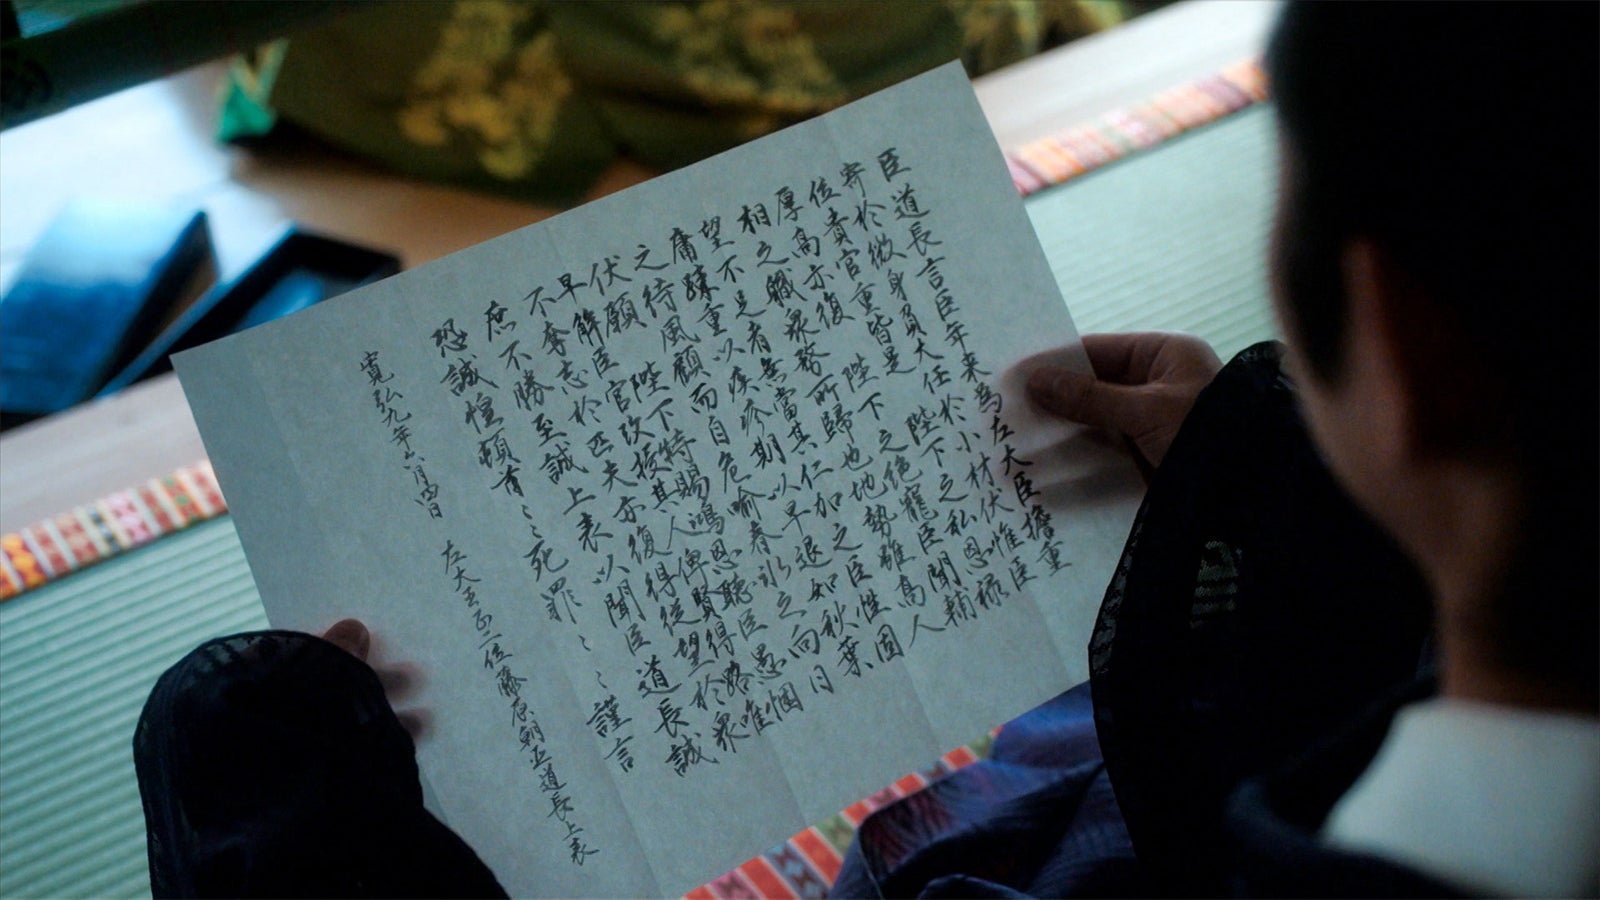 臣道長言臣年来為左大臣擔重
寄於微身負大任於小材伏惟臣
位貴官重皆是 陛下之私恩祿
厚高亦復 陛下之絶寵臣聞輔
相之職衆務所歸也地勢雖高人
望不足者無當其仁加之臣性固
庸踈重以疾疹期以早退如秋葉
之待風顧而自危喩春氷之向日
伏願 陛下特賜鴻恩聽臣愚悃
早解臣官改授其人俾賢得路唯
不奪志於匹夫亦復得從望於衆
庶不勝至誠上表以聞臣道長誠
恐誠惶頓首〻〻死罪〻〻謹言
寛弘九年六月四日 左大臣正二位藤原朝臣道長上表